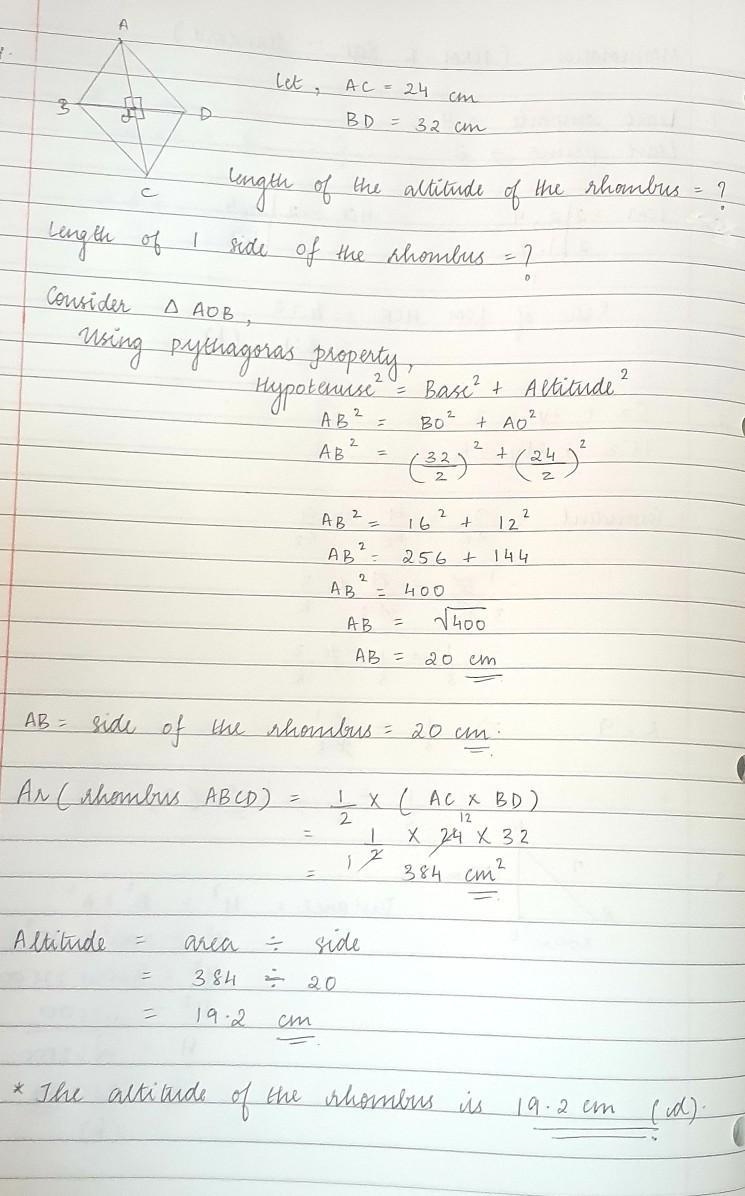 A
B
O
D
C
Let, AC = 24 cm
BD = 32 cm
length of the altitude of the rhombus = ?
length of 1 side of the rhombus = ?
Consider △ AOB,
Using pythagoras property,
Hypotenuse² = Base² + Altitude²
AB² = BO² + AO²
AB² = (32/2)² + (24/2)²
AB² = 16² + 12²
AB² = 256 + 144
AB² = 400
AB = √400
AB = 20 cm
AB = side of the rhombus = 20 cm.
Ar (rhombus ABCD) = 1/2 × (AC × BD)
12
= 1/2 × 24 × 32
1
= 384 cm²
Altitude = area ÷ side
= 384 ÷ 20
= 19.2 cm
* The altitude of the rhombus is 19.2 cm (d).